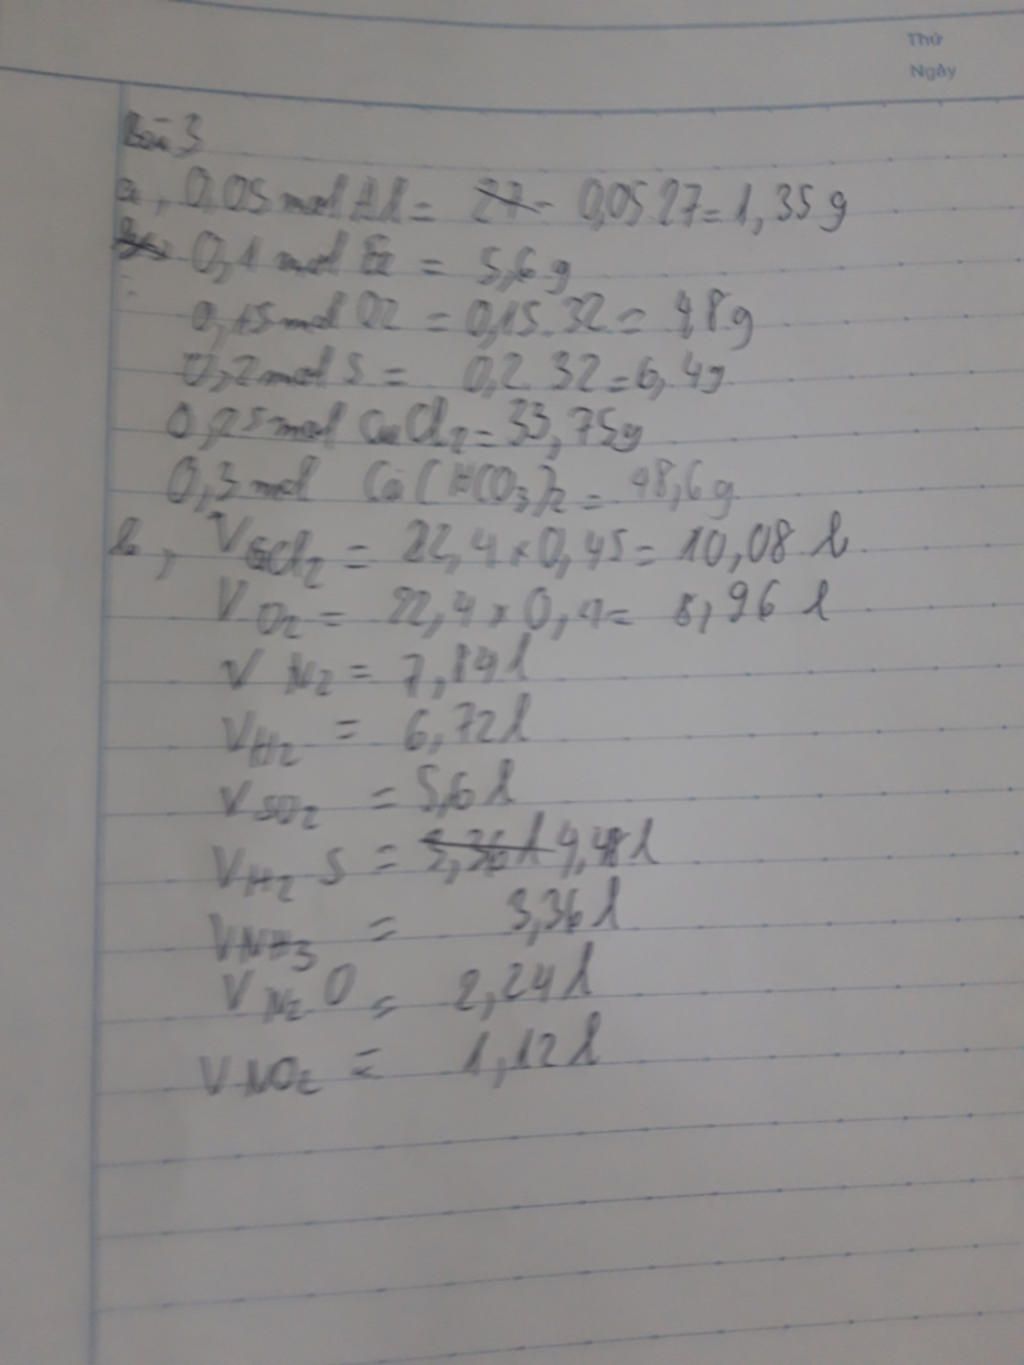 Thứ
Ngày
Bài 3
a, 0,05 mol Al = 0,05 27 = 1,35 g
0,1 mol Fe = 5,6 g
0,15 mol O2 = 0,15.32 = 4,8 g
0,2 mol S = 0,2 32 = 6,4g
0,25 mol CuCl2 = 33,75g
0,3 mol Ca(HCO3)2 = 48,6 g
b, Cl2 = 22,4 x 0,45 = 10,08 l
V O2 = 22,4 x 0,4 = 8,96 l
V N2 = 7,84 l
V H2 = 6,72 l
V SO2 = 5,6 l
V H2 S = 4,48 l
V NH3 = 3,36 l
V N2 O = 2,24 l
V NO2 = 1,12 l